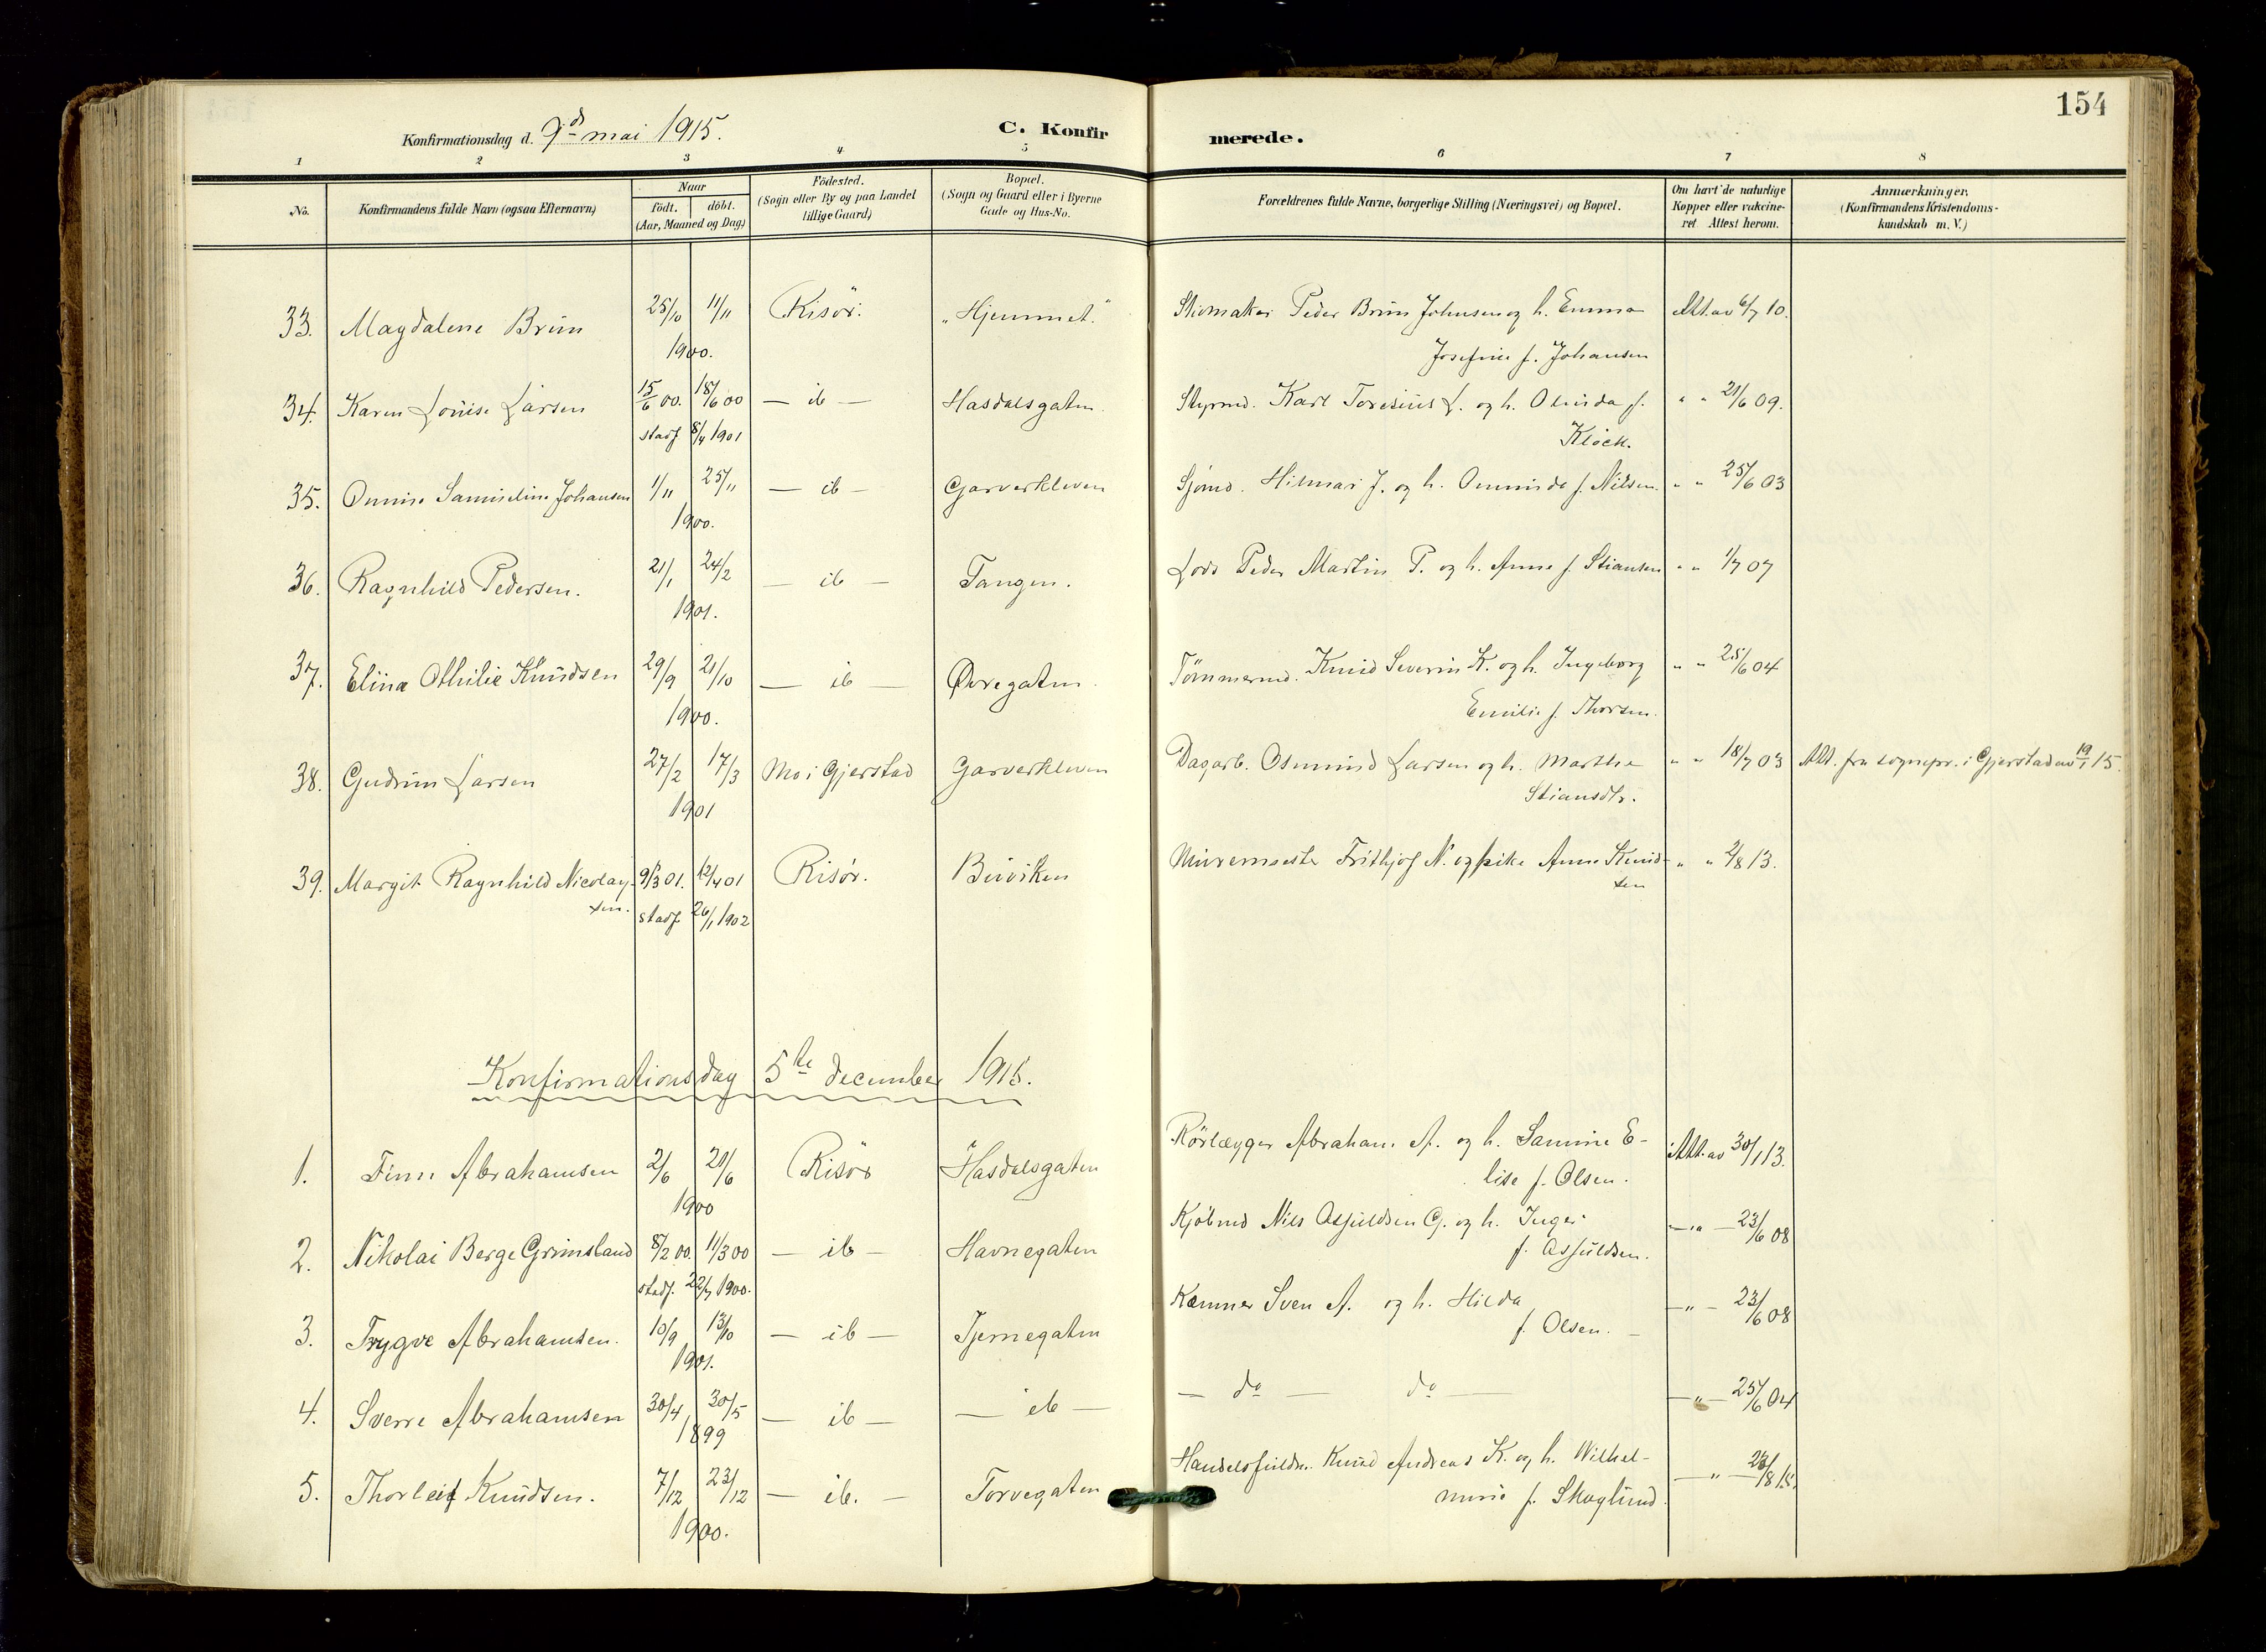 154
Konfirmationsdag d. 9de mai 1915. C. Konfirmerede.
1 2 3 4 5 6 7 8
No. Konfirmandens fulde Navn (ogsaa Efternavn) Naar født. døbt. (Aar, Maaned og Dag) Födested. (Sogn eller By og paa Landet tillige Gaard) Bopæl. (Sogn og Gaard eller i Byerne Gade og Hus-No. Forældrenes fulde Navne, borgerlige Stilling (Næringsvei) og Bopæl. Om havt de naturlige Kopper eller vakcineret Attest herom. Anmærkninger. (Konfirmandens Kristendomskundskab m. V.)
33. Magdalene Brun 25/10 11/11 Risör. "Hjemmet." Peder Brun Johnsen og h. Emma Att. av 6/7 10.
1900. Josefine f. Johansen
34. Karen Louise Larsen 15/6 00. 18/6 00 — ib — Hasdalsgaten Styrmd. Karl Toresius L. og h. Olinda f. " " 21/6 09.
stadf 8/4 1901 Klock.
35. Onnine Samueline Johansen 1/11 25/11 — ib — Garverkleven Sjømd. Hilmar J. og h. Onminda f. Nilsen. " " 25/6 03
1900.
36. Ragnhild Pedersen. 21/1 24/2 — ib — Tangen. Lods Peder Martin P. og h. Anne f. Stiansen " " 1/7 07
1901.
37. Elina Othilie Knudsen 29/9 21/10 — ib — Øvregaten. Tømmermd. Knud Severin K. og h. Ingeborg " " 25/6 04
1900. Emilie f. Thorsen.
38. Gudrun Larsen 27/2 17/3 Mo i Gjerstad Garverkleven Dagarb. Osmund Larsen og h. Marthe " " 18/7 03 Att. fra sognepr. i Gjerstad av 19/1 15.
1901 Stiansdtr.
39. Margit Ragnhild Nicolay- 9/3 01. 12/4 01 Risör. Buviken Murermester Frithjof N. og pike Anna Knud- " " 2/8 13.
sen. stadf. 26/1 1902 sen
Konfirmationsdag 5te december 1915.
1. Finn Abrahamsen 2/6 21/6 Risör Hasdalsgaten Rørlægger Abraham A. og h. Samine E- Att. av 30/1 13.
1900 lise f. Olsen.
2. Nikolai Berge Grimsland 8/2 00. 11/3 00 — ib — Havnegaten Kjøbmd Nils Osfuldsen G. og h. Inger — " — 23/6 08
stadf. 22/7 1900. f. Osfuldsen.
3. Trygve Abrahamsen. 10/9 13/10 — ib — Tjernegaten Kæmner Sven A. og h. Hilda — " — 23/6 08
1901. f. Olsen. —
4. Sverre Abrahamsen 30/4 30/5 — ib — — ib — — do — do — — " — 25/6 04
1899
5. Thorleif Knudsen. 7/12 23/12 — ib. — Torvegaten Handelsfuldm. Knud Andreas K. og h. Wilhel- — " — /8 15.
1900. mine f. Skoglund.